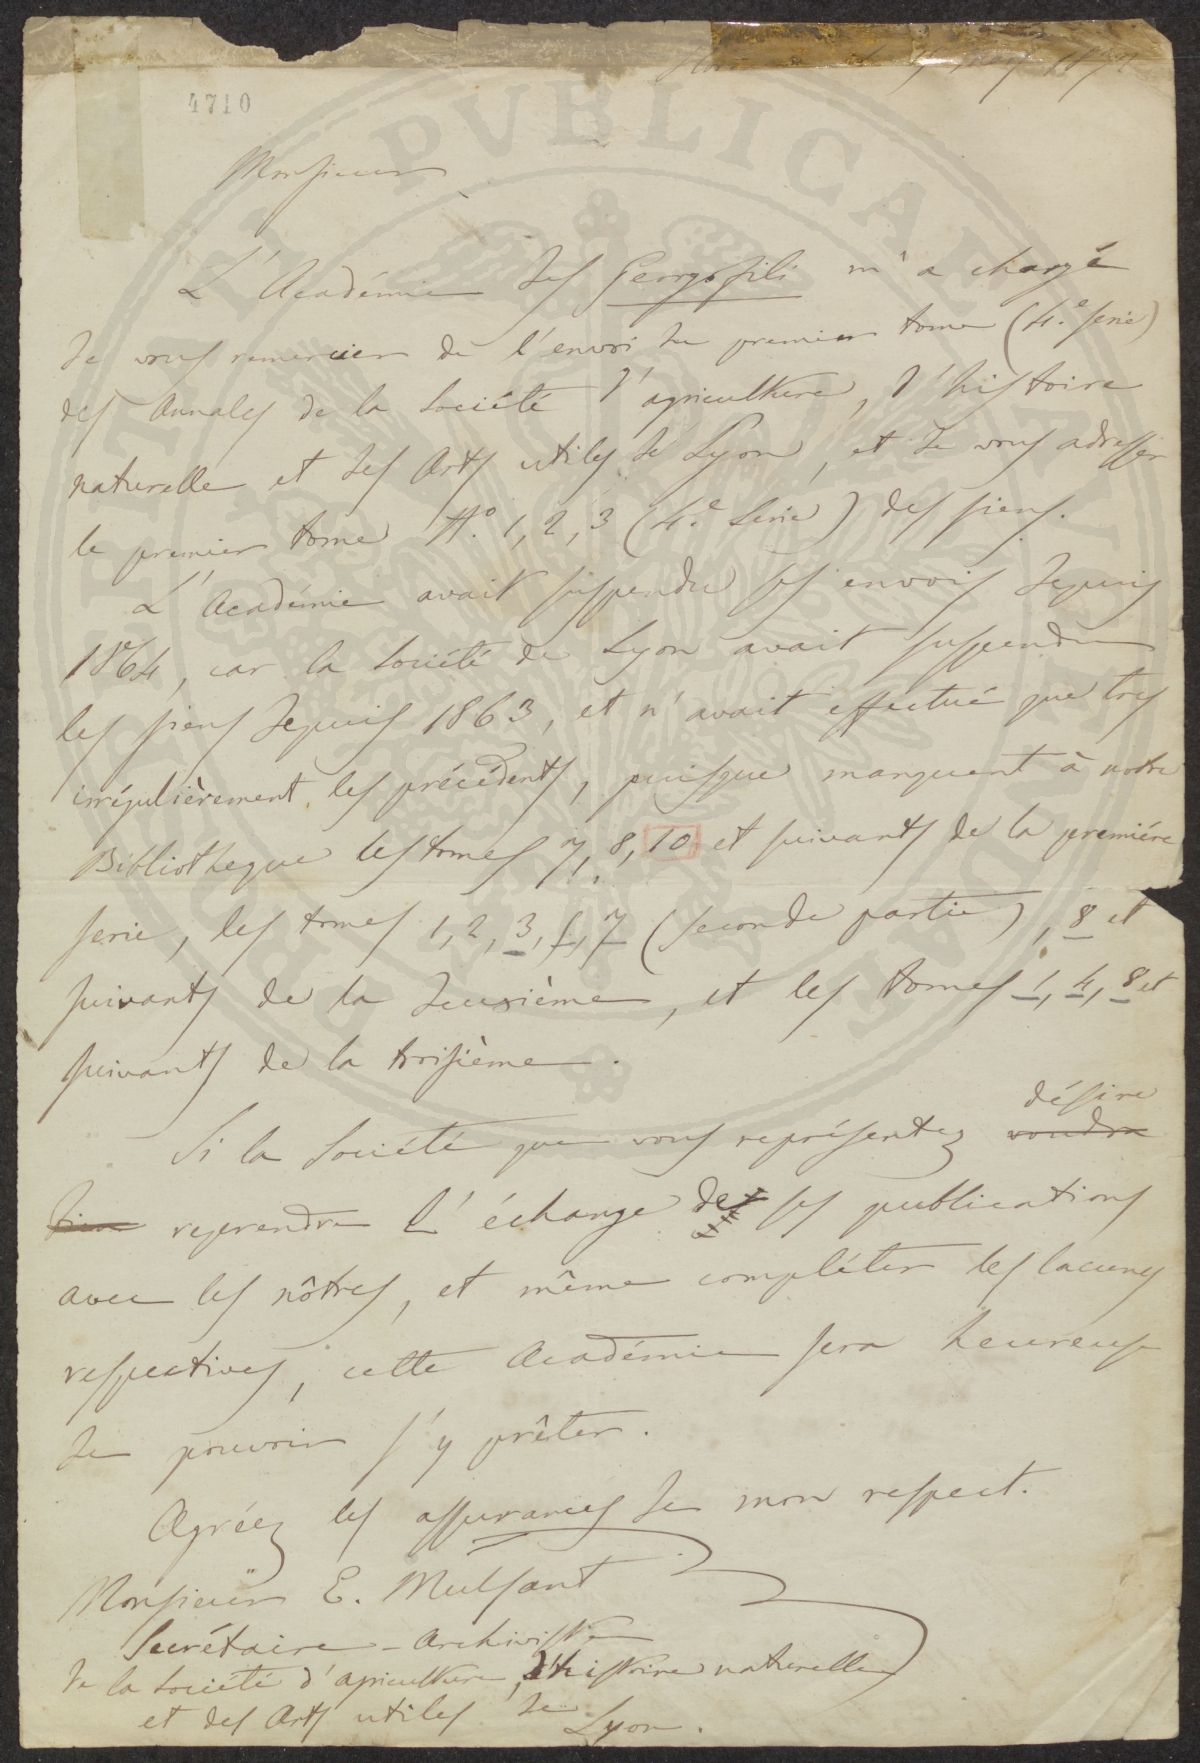 4710
1872
Monsieur
L'Académie des Georgofili m'a chargé
de vous remercier de l'envoi du premier tome (4.e serie)
des Annales de la Société d'agriculture, d'histoire
naturelle et des Arts utiles de Lyon, et de vous adresser
le premier tome N.o 1, 2, 3 (4.e Serie) des siens.
L'Académie avait suspendu ses envois depuis
1864, car la Société de Lyon avait suspendu
les siens depuis 1863, et n'avait effectué que tres
irrégulièrement les précédents, puisque manquent à notre
Bibliotheque les tomes 7, 8, 10 et suivants de la première
serie, les tomes 1, 2, 3, 5, 7 (seconde partie), 8 et
suivants de la deuxième, et les tomes 1, 4, 8 et
suivants de la troisième.
désire
Si la Société que vous représentez voudra
bien reprendre l'échange des ses publications
avec les nôtres, et même compléter les lacunes
respectives, cette Académie sera heureuse
de pouvoir s'y prêter.
Agréez les assurances de mon respect.
Monsieur E. Mulsant
Secrétaire-Archiviste
de la Société d'agriculture, d'histoire naturelle
et des Arts utiles de Lyon.
PVBLICAE VTILITATI